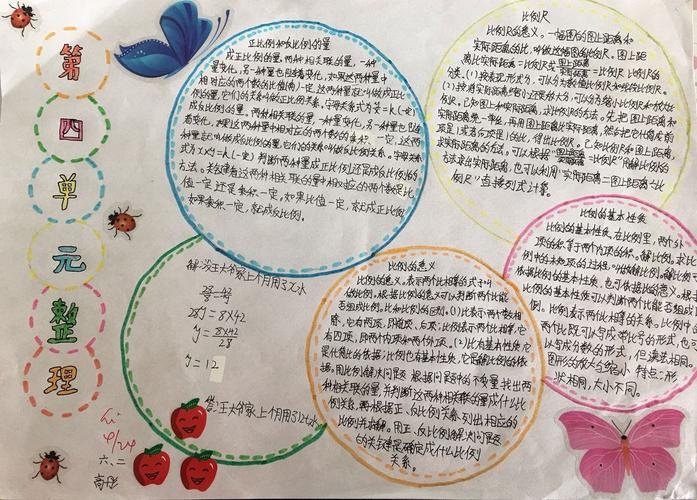 第
四
单
元
整
理
正比例和反比例的量
成正比例的量,两种相关联的量,一种
量变化,另一种量也随着变化,如果这两种量中
相对应的两个数的比值(商)一定,这两种量就叫做成正比
例的量,它们的关系叫做正比例关系。
成反比例的量。两种相关联的量,一种量变化,另一种量也随
着变化,如果这两种量中相对应的两个数的乘积一定,这两
种量就叫做成反比例的量,它们的关系叫做反比例关系。字母关系
式为x×y=k(一定)判断两种量成正比例还是成反比例的
方法。关键看这两种相关联的量中相对应的两个数是比
值一定还是乘积一定。如果比值一定,就成正比例
如果乘积一定,就成反比例。
比例尺
比例尺的意义,一幅图的图上距离和
实际距离的比,叫做这幅图的比例尺。图上距
离比实际距离=比例尺或图上距离/实际距离=比例尺 比例尺的
分类。(1)按表现形式分,可以分为数值比例尺和线段比例尺。
(2)按将实际距离缩小还是放大分,可以分为缩小比例尺和放大比
例尺。已知图上和实际距离,求比例尺的方法。先把图上距离和
实际距离统一单位,再用图上距离比实际距离,然后把它化简成前
项是1或后项是1的比,得出比例尺。已知比例尺和图上距离,
求实际距离的方法。可以根据“图上距离/实际距离=比例尺”用解比例的
方法求出实际距离,也可以利用“实际距离=图上距离÷比
例尺”直接列式计算。
比例的基本性质
比例的基本性质,在比例里,两个外
项的积等于两个内项的积。解比例,求比
例中的未知项的过程,叫做解比例。
依据比例的基本性质,也可依据比例的意义。根
比例的基本性质可以判断两个比能否组成比
例。比例表示两个比相等的关系。比例中的
两个比既可以写成带比号的形式,也可
以写成分数的形式,但读法相同。
图形的放大与缩小 特点:形
状相同,大小不同。
解:设王大爷家上个月用了x吨水
28y=8×42
y=8×42/28
y=12
答:王大爷家上个月用了12吨水
比例的意义
比例的意义,表示两个比相等的式子叫
做比例。根据比例的意义可以判断两个比能
否组成比例。比和比例的区别。(1)比表示两个数相
除,它有两项,即前项、后项;比例表示两个比相等,它
有四项,即两个内项和两个外项。(2)比有基本性质,它
是化简比的依据;比例也有基本性质,它是解比例的依
据。用比例解决问题 根据问题中的不变量,找出两
种相关联的量,并判断这两种相关联的量成什么比
例关系,再根据正、反比例关系列出相应的
比例并求解。用正、反比例解决问题
的关键是确定成什么比例
关系。
Li
4/24
六、二